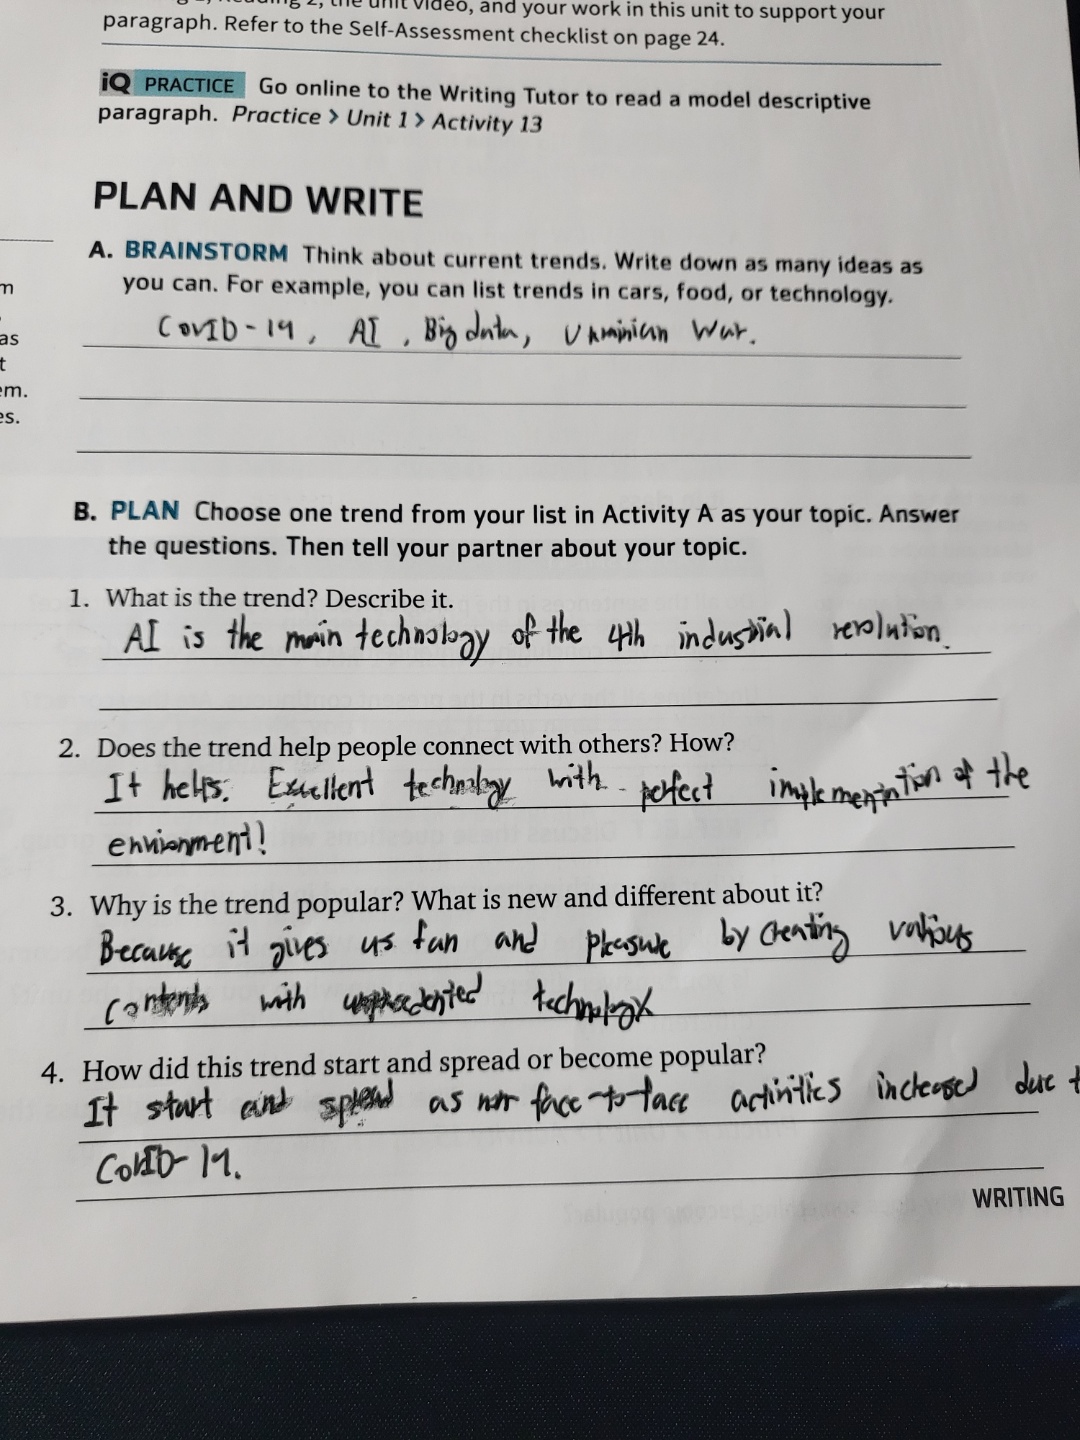 2, the unit video, and your work in this unit to support your
paragraph. Refer to the Self-Assessment checklist on page 24.
iQ PRACTICE Go online to the Writing Tutor to read a model descriptive
paragraph. Practice > Unit 1 > Activity 13
PLAN AND WRITE
A. BRAINSTORM Think about current trends. Write down as many ideas as
you can. For example, you can list trends in cars, food, or technology.
COVID-19, AI, Big data, War.
as
t
em.
es.
B. PLAN Choose one trend from your list in Activity A as your topic. Answer
the questions. Then tell your partner about your topic.
1. What is the trend? Describe it.
AI is the main technology of the 4th industrial revolution.
2. Does the trend help people connect with others? How?
It helps. Excellent technology with perfect implementation of the
environment!
3. Why is the trend popular? What is new and different about it?
Because it gives us fun and pleasure by creating various
contents with technology
4. How did this trend start and spread or become popular?
It start and spread as non face-to-face activities increased due t
COVID-19.
WRITING